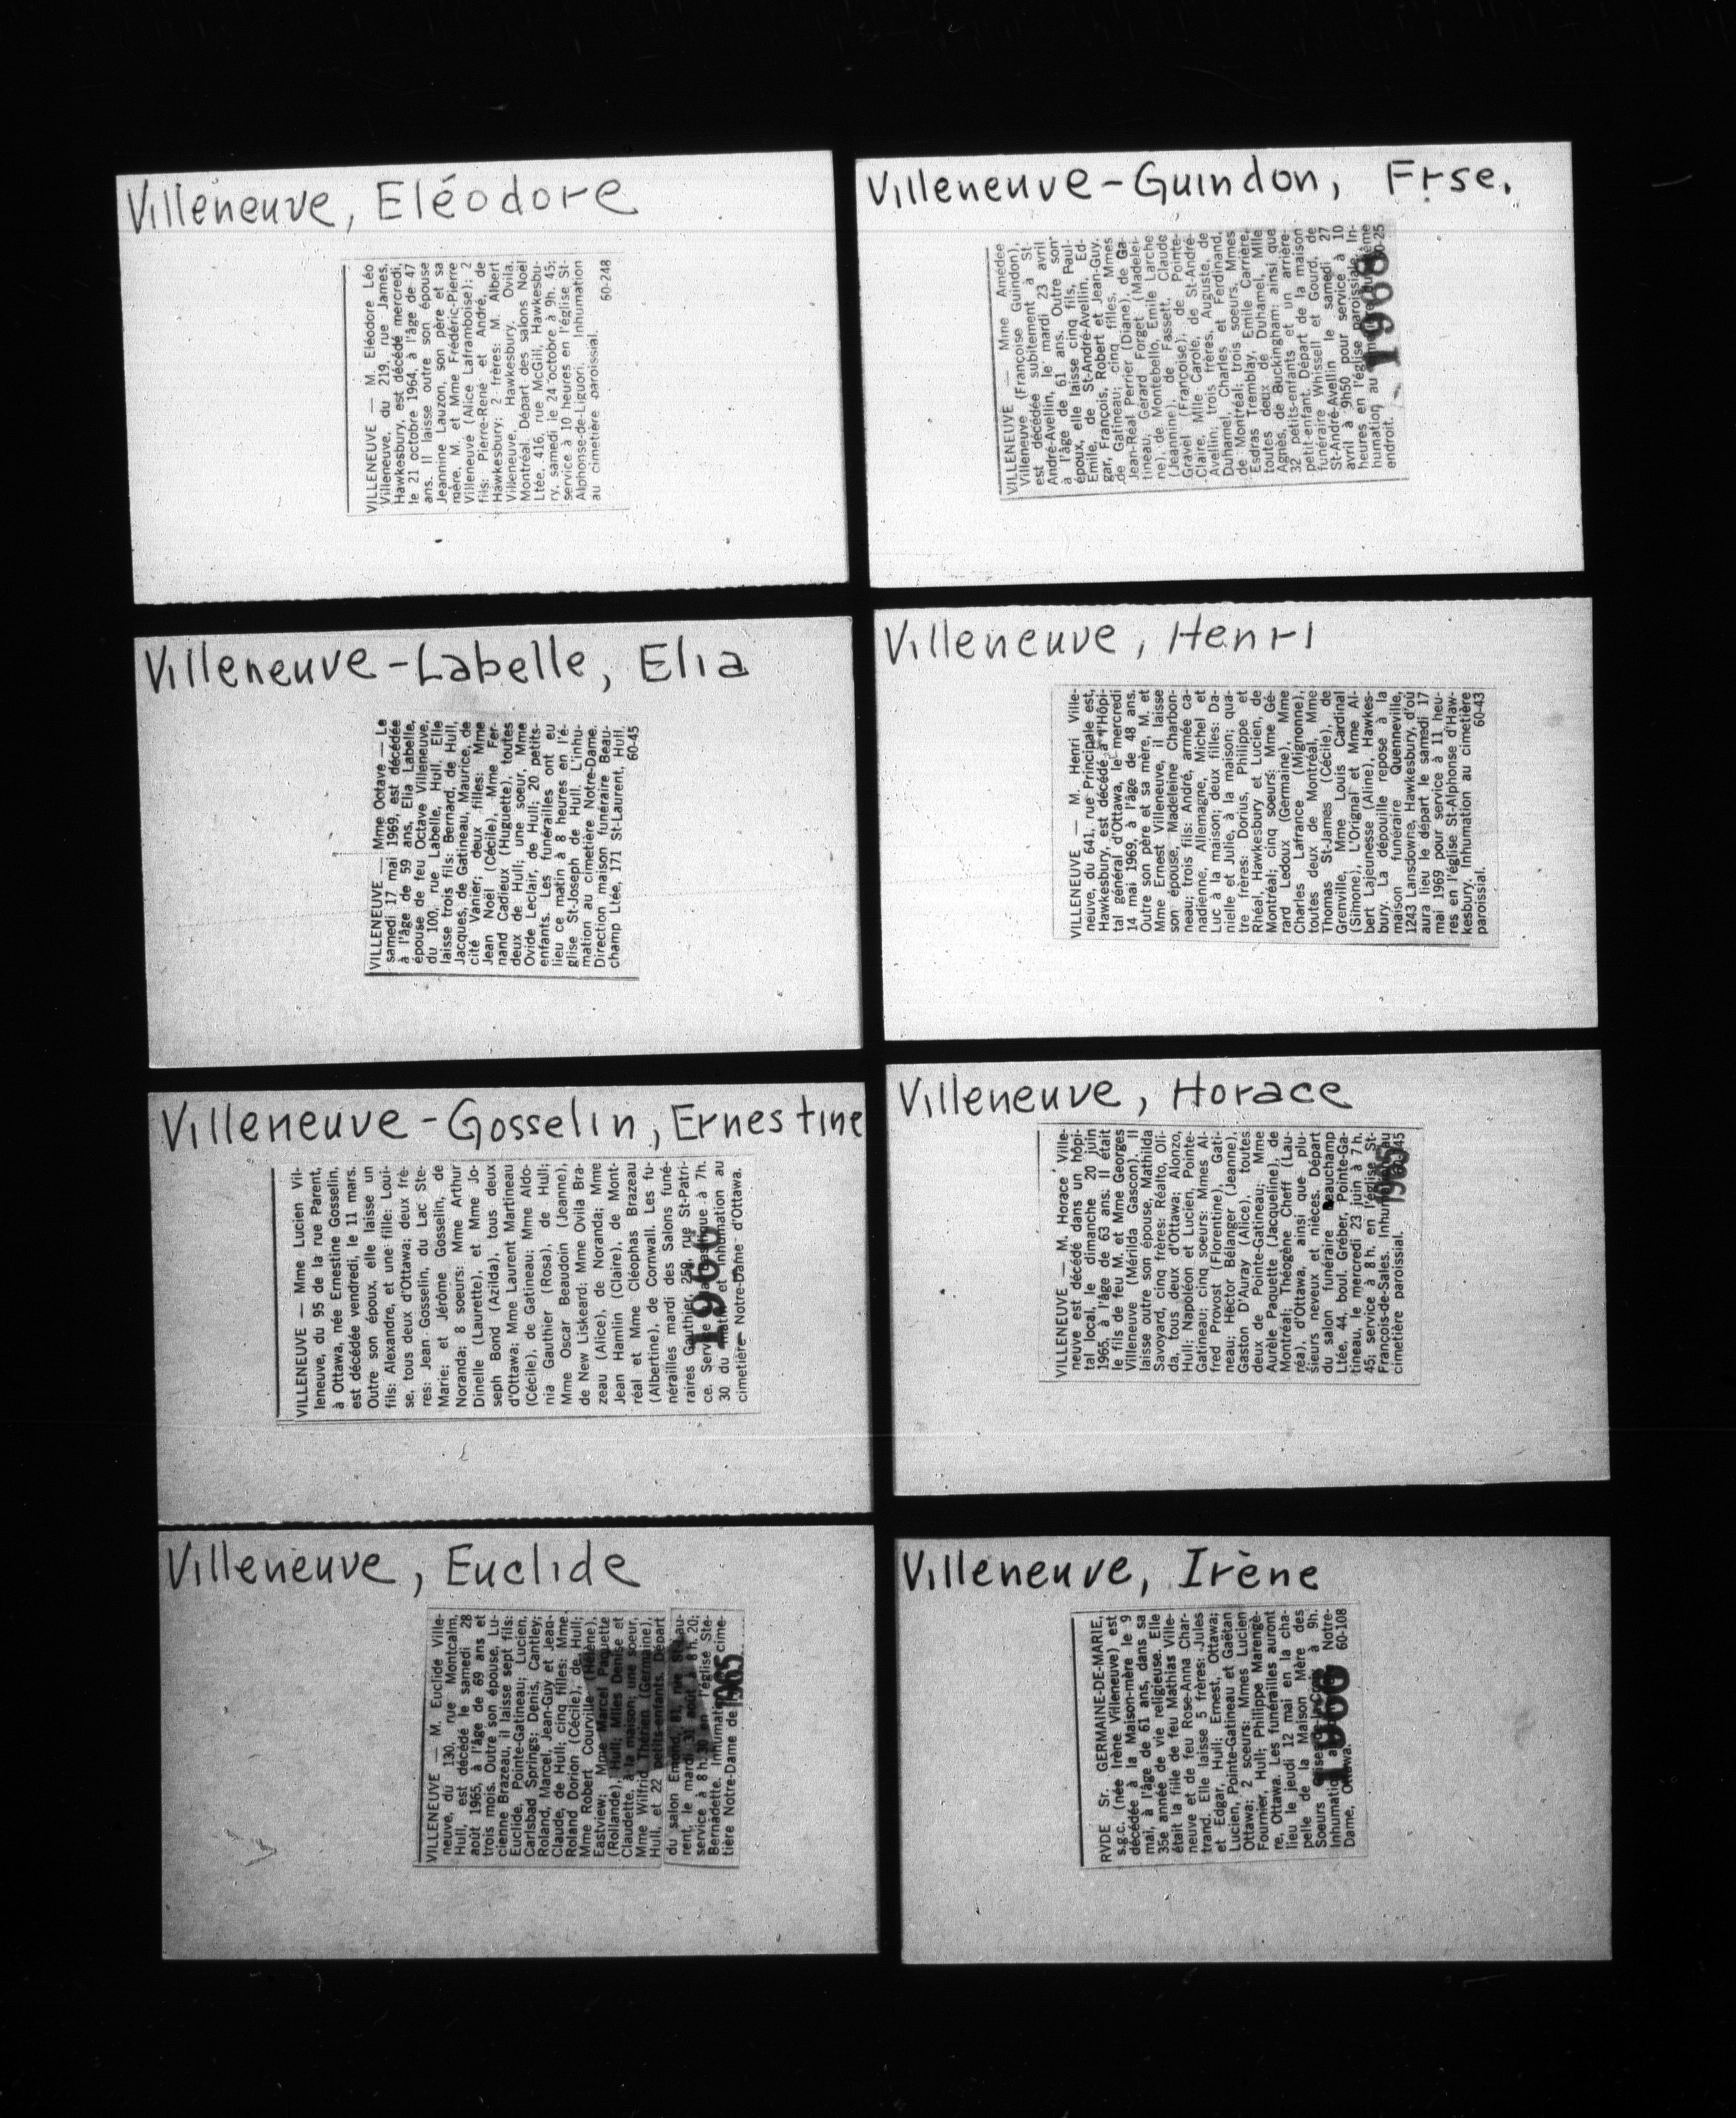 Villeneuve, Eléodore
VILLENEUVE — M. Eléodore Léo
Villeneuve, du 219, rue James,
Hawkesbury, est décédé mercredi,
le 21 octobre 1964, à l'âge de 47
ans. Il laisse outre son épouse
Jeannine Lauzon, son père et sa
mère, M. et Mme Frédéric-Pierre
Villeneuve (Alice Laframboise); 2
fils: Pierre-René et André, de
Hawkesbury; 2 frères: M. Albert
Villeneuve, Hawkesbury, Ovila,
Montréal. Départ des salons Noël
Ltée, 416, rue McGill, Hawkesbu-
ry, samedi le 24 octobre à 9h. 45;
service à 10 heures en l'église St-
Alphonse-de-Liguori. Inhumation
au cimetière paroissial.
60-248
Villeneuve-Labelle, Elia
VILLENEUVE — Mme Octave — Le
samedi 17 mai 1969, est décédée
à l'âge de 59 ans, Elia Labelle,
épouse de feu Octave Villeneuve,
du 100, rue Labelle, Hull. Elle
laisse trois fils: Bernard, de Hull,
Jacques, de Gatineau, Maurice, de
cité Vanier; deux filles: Mme
Jean Noël (Cécile), Mme Fer-
nand Cadieux (Huguette), toutes
deux de Hull; une soeur, Mme
Ovide Leclair, de Hull; 20 petits-
enfants. Les funérailles ont eu
lieu ce matin à 8 heures en l'é-
glise St-Joseph de Hull. L'inhu-
mation au cimetière Notre-Dame.
Direction maison funéraire Beau-
champ Ltée, 171 St-Laurent, Hull.
60-45
Villeneuve-Gosselin, Ernestine
VILLENEUVE — Mme Lucien Vil-
leneuve, du 95 de la rue Parent,
à Ottawa, née Ernestine Gosselin,
est décédée vendredi, le 11 mars.
Outre son époux, elle laisse un
fils: Alexandre, et une fille: Loui-
se, tous deux d'Ottawa; deux frè-
res: Jean Gosselin, du Lac Ste-
Marie; et Jérôme Gosselin, de
Noranda; 8 soeurs: Mme Arthur
Dinelle (Laurette), et Mme Jo-
seph Bond (Azilda), tous deux
d'Ottawa; Mme Laurent Martineau
(Cécile), de Gatineau; Mme Aldo-
nia Gauthier (Rosa), de Hull;
Mme Oscar Beaudoin (Jeanne),
de New Liskeard; Mme Ovila Bra-
zeau (Alice), de Noranda; Mme
Jean Hamlin (Claire), de Mont-
réal et Mme Cléophas Brazeau
(Albertine), de Cornwall. Les fu-
nérailles mardi des Salons funé-
raires Gauthier, 259, rue St-Patri-
ce. Service à la Basilique à 7h.
30 du matin et inhumation au
cimetière Notre-Dame d'Ottawa.
1966
Villeneuve, Euclide
VILLENEUVE — M. Euclide Ville-
neuve, du 130, rue Montcalm,
Hull, est décédé le samedi 28
août 1965, à l'âge de 69 ans et
trois mois. Outre son épouse, Lu-
cienne Brazeau, il laisse sept fils:
Euclide, Pointe-Gatineau; Lucien,
Carlsbad Springs; Denis, Cantley;
Roland, Marcel, Jean-Guy et Jean-
Claude, de Hull; cinq filles: Mme
Roland Dorion (Cécile), de Hull;
Mme Robert Courville (Hélène),
Eastview; Mme Marcel Paquette
(Rollande), Hull; Mlles Denise et
Claudette, à la maison; une soeur,
Mme Wilfrid Thérien (Germaine),
Hull, et 22 petits-enfants. Départ
du salon Emond, 81, rue St-Lau-
rent, le mardi 31 août à 8 h. 20;
service à 8 h. 30 en l'église Ste-
Bernadette. Inhumation cime-
tière Notre-Dame de
1965
Villeneuve-Guindon, Frse.
VILLENEUVE — Mme Amédée
Villeneuve (Françoise Guindon),
est décédée subitement à St-
André-Avellin, le mardi 23 avril
à l'âge de 61 ans. Outre son
époux, elle laisse cinq fils, Paul-
Emile, de St-André-Avellin, Ed-
gar, François, Robert et Jean-Guy,
de Gatineau; cinq filles, Mmes
Jean-Réal Perrier (Diane), de Ga-
tineau; Gérard Forget (Madelei-
ne), de Montebello, Emile Larche
(Jeannine), de Fassett, Claude
Gravel (Françoise), de Pointe-
Claire, Mlle Carole, de St-André-
Avellin; trois frères, Auguste, de
Duhamel, Charles et Ferdinand,
de Montréal; trois soeurs, Mmes
Esdras Tremblay, Emile Carrière,
toutes deux de Duhamel, Mlle
Agnès, de Buckingham; ainsi que
32 petits-enfants et un arrière-
petit-enfant. Départ de la maison
funéraire Whissell et Gourd, de
St-André-Avellin le samedi 27
avril à 9h50 pour service à 10
heures en l'église paroissiale. In-
humation au cimetière du même
endroit.
60-25
1968
Villeneuve, Henri
VILLENEUVE — M. Henri Ville-
neuve, du 641, rue Principale est,
Hawkesbury, est décédé à l'Hôpi-
tal général d'Ottawa, le mercredi
14 mai 1969, à l'âge de 48 ans.
Outre son père et sa mère, M. et
Mme Ernest Villeneuve, il laisse
son épouse, Madeleine Charbon-
neau; trois fils: André, armée ca-
nadienne, Allemagne, Michel et
Luc à la maison; deux filles: Da-
nielle et Julie, à la maison; qua-
tre frères: Dorius, Philippe et
Rhéal, Hawkesbury et Lucien, de
Montréal; cinq soeurs: Mme Gé-
rard Ledoux (Germaine), Mme
Charles Lafrance (Mignonne),
toutes deux de Montréal, Mme
Thomas St-James (Cécile), de
Grenville, Mme Louis Cardinal
(Simone), L'Orignal et Mme Al-
bert Lajeunesse (Aline), Hawkes-
bury. La dépouille repose à la
maison funéraire Quenneville,
1243 Lansdowne, Hawkesbury, d'où
aura lieu le départ le samedi 17
mai 1969 pour service à 11 heu-
res en l'église St-Alphonse d'Haw-
kesbury. Inhumation au cimetière
paroissial.
60-43
Villeneuve, Horace
VILLENEUVE — M. Horace Ville-
neuve est décédé dans un hôpi-
tal local, le dimanche 20 juin
1965, à l'âge de 63 ans. Il était
le fils de feu M. et Mme Georges
Villeneuve (Mérilda Gascon). Il
laisse outre son épouse, Mathilda
Savoyard, cinq frères: Réalto, Oli-
da, tous deux d'Ottawa; Alonzo,
Hull; Napoléon et Lucien, Pointe-
Gatineau; cinq soeurs: Mmes Al-
fred Provost (Florentine), Gati-
neau; Hector Bélanger (Jeanne),
Gaston D'Auray (Alice), toutes
deux de Pointe-Gatineau; Mme
Aurèle Paquette (Jacqueline), de
Montréal; Théogène Cheff (Lau-
réa), d'Ottawa, ainsi que plu-
sieurs neveux et nièces. Départ
du salon funéraire Beauchamp
Ltée, 44, boul. Gréber, Pointe-Ga-
tineau, le mercredi 23 juin à 7 h.
45; service à 8 h. en l'église St-
François-de-Sales. Inhumation au
cimetière paroissial.
1965
Villeneuve, Irène
RVDE Sr. GERMAINE-DE-MARIE,
s.g.c. (née Irène Villeneuve) est
décédée à la Maison-mère le 9
mai, à l'âge de 61 ans, dans sa
35e année de vie religieuse. Elle
était la fille de feu Mathias Ville-
neuve et de feu Rose-Anna Char-
trand. Elle laisse 5 frères: Jules
et Edgar, Hull; Ernest, Ottawa;
Lucien, Pointe-Gatineau et Gaétan
Ottawa; 2 soeurs: Mmes Lucien
Fournier, Hull; Philippe Marengè-
re, Ottawa. Les funérailles auront
lieu le jeudi 12 mai en la cha-
pelle de la Maison Mère des
Soeurs Grises de la Croix à 9h.
Inhumation à Notre-
Dame, Ottawa.
60-108
1966